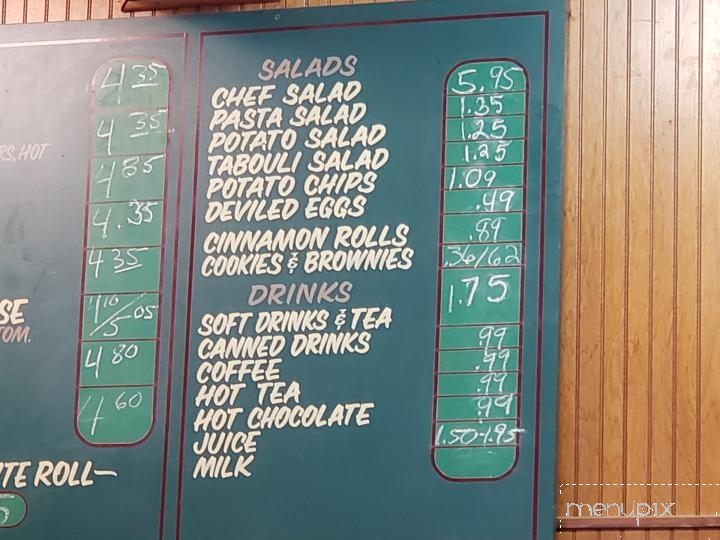 SALADS
CHEF SALAD 5.95
PASTA SALAD 1.35
POTATO SALAD 1.25
TABOULI SALAD 1.25
POTATO CHIPS 1.09
DEVILED EGGS .49
CINNAMON ROLLS .89
COOKIES & BROWNIES .36/.62
DRINKS
SOFT DRINKS & TEA 1.75
CANNED DRINKS .99
COFFEE .99
HOT TEA .99
HOT CHOCOLATE .99
JUICE 1.50-1.95
MILK
4 35
4 35
RS, HOT
4 85
4.35
4 35
SE 4 10/5.05
TOM.
4 80
4 60
TE ROLL—
menupix